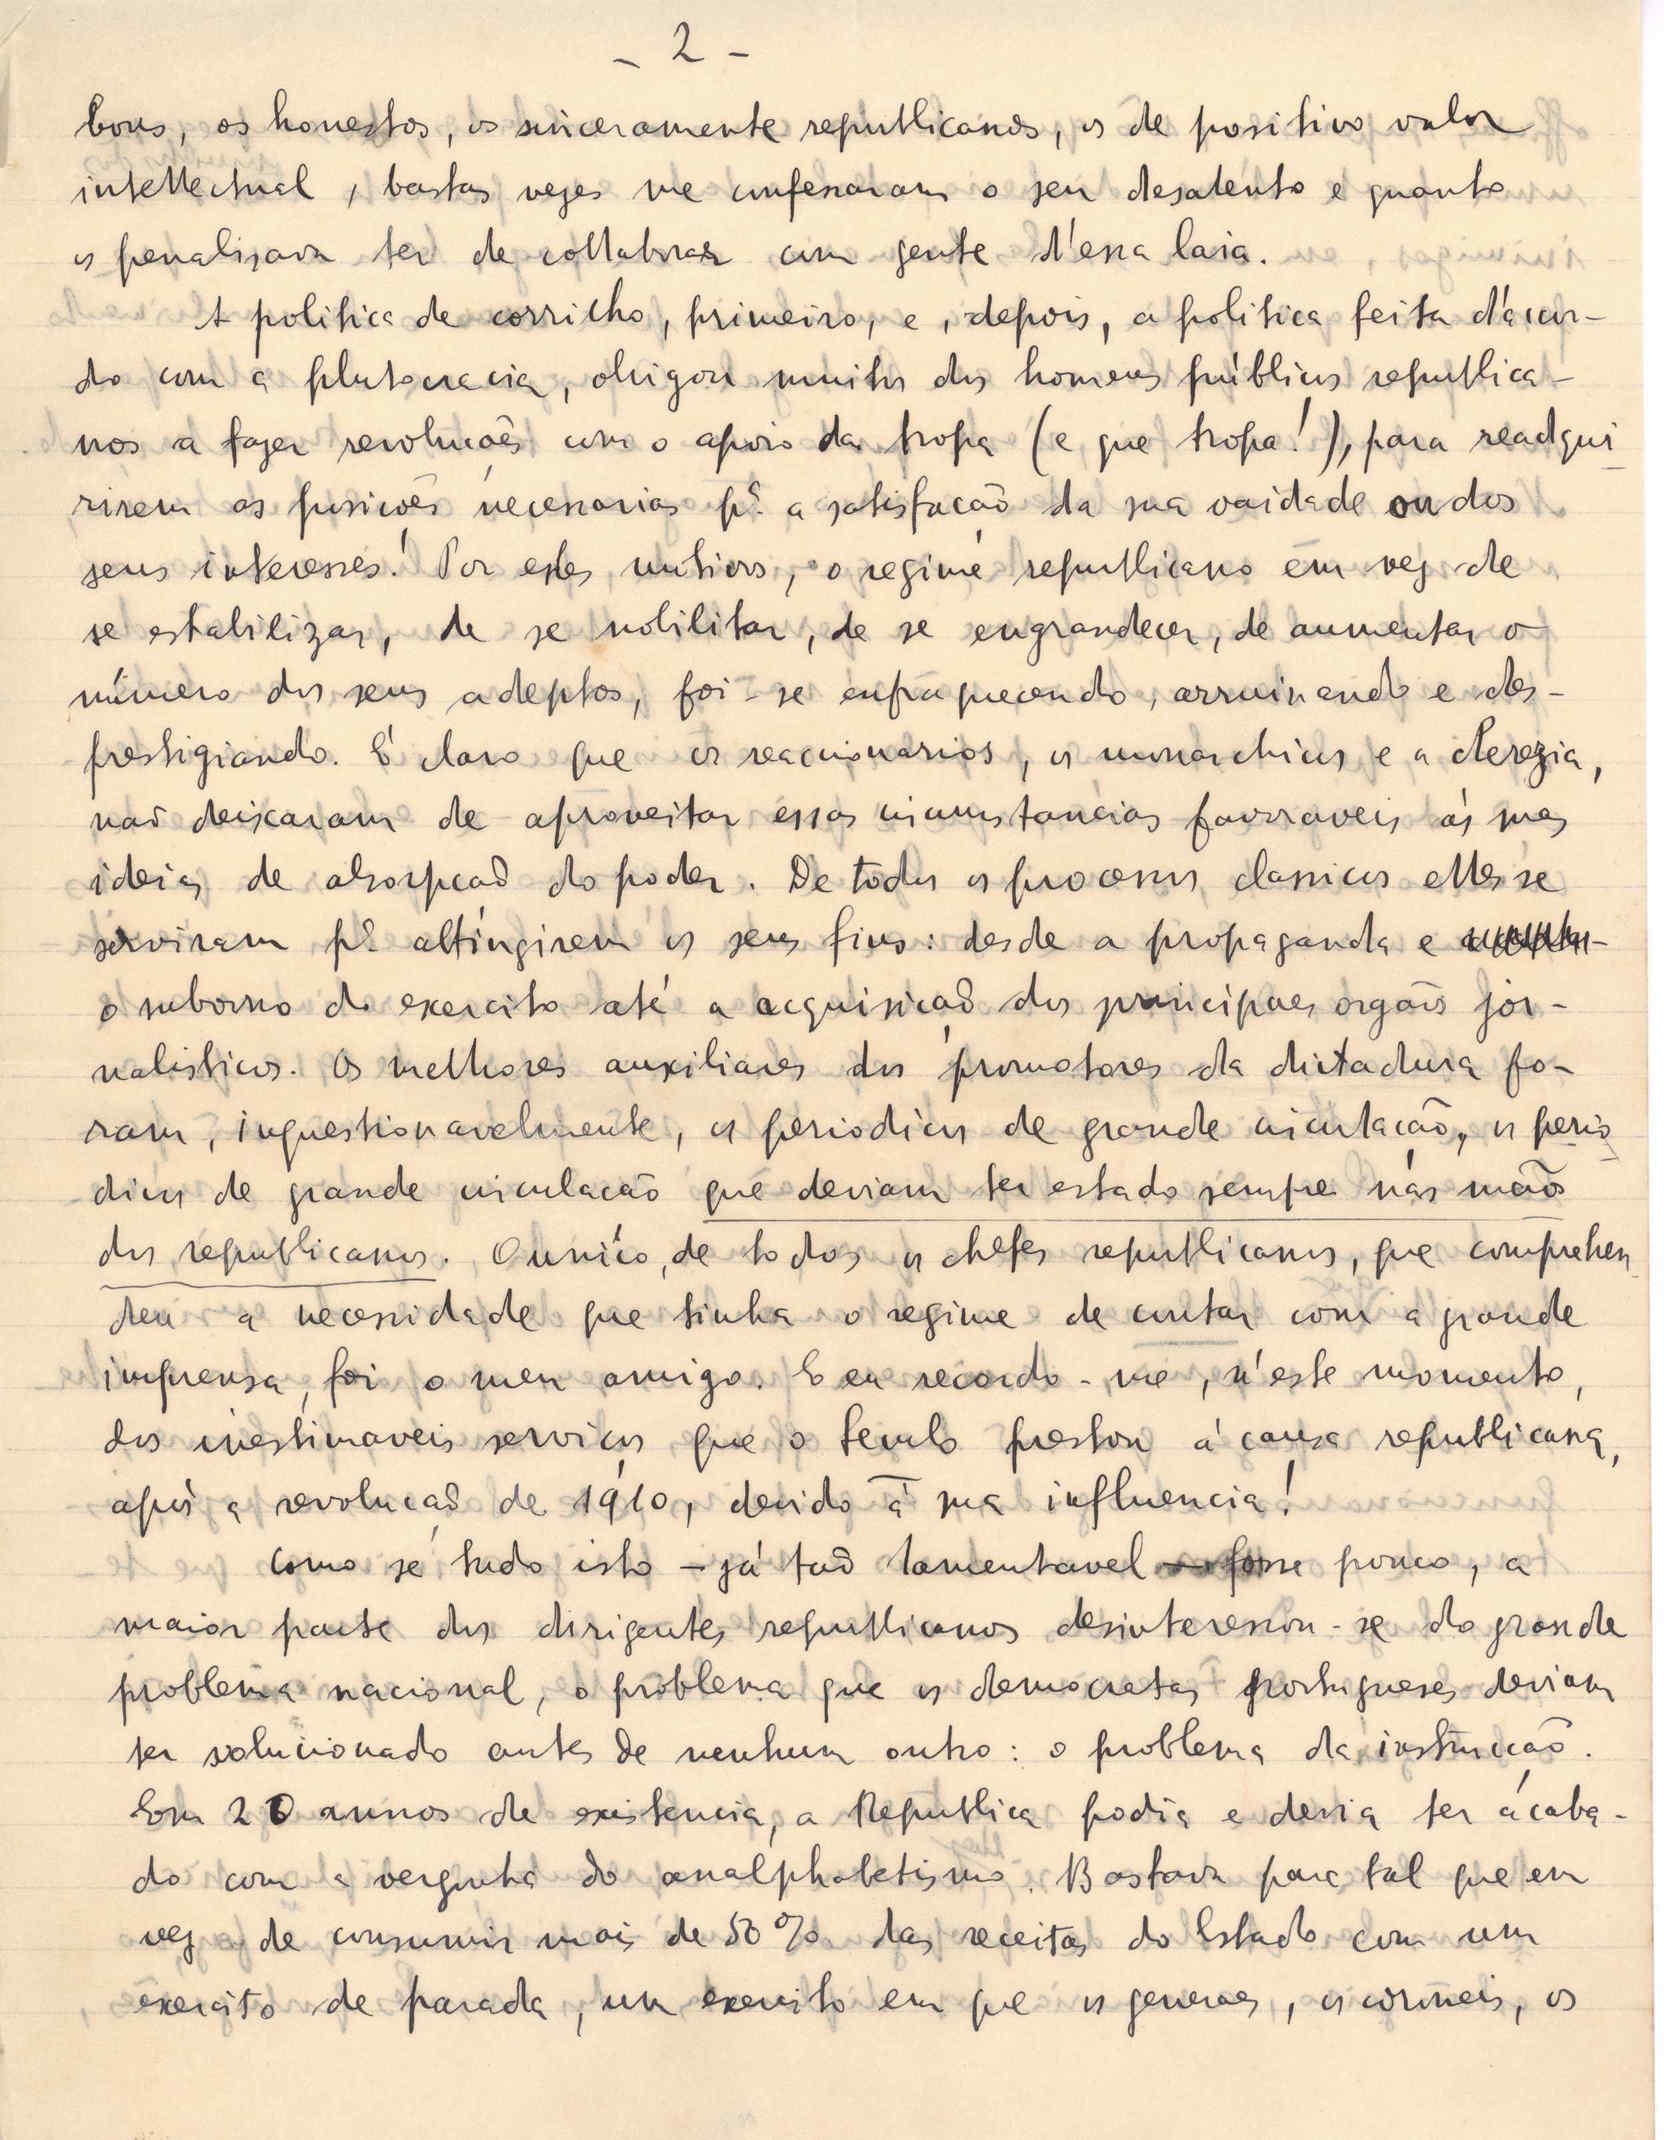 - 2 -
bons, os honestos, os sinceramente republicanos, os de positivo valor
intellectual, bastas vezes me confessaram o seu desalento e quanto
os penalisava ter de collaborar com gente d'essa laia.
A politica de corrilho, primeiro, e, depois, a politica feita d'acor-
do com a plutocracia, obrigou muitos dos homens públicos republica-
nos a fazer revoluções com o apoio da tropa (e que tropa!), para readqui-
rirem as posições necessarias pª a satisfação da sua vaidade ou dos
seus interesses! Por estes motivos, o regime republicano em vez de
se estabilizar, de se nobilitar, de se engrandecer, de aumentar o
número dos seus adeptos, foi-se enfraquecendo, arruinando e des-
prestigiando. É claro que os reaccionarios, os monarchicos e a clerezia,
não deixaram de aproveitar essas circumstancias favoraveis ás suas
ideias de absorpção do poder. De todos os processos classicos elles se
serviram pª attingirem os seus fins: desde a propaganda e
o suborno do exercito até a acquisição dos principaes orgãos jor-
nalisticos. Os melhores auxiliares dos promotores da dictadura fo-
ram, inquestionavelmente, os periodicos de grande circulação, os perio-
dicos de grande circulação que deviam ter estado sempre nas mãos
dos republicanos. O unico, de todos os chefes republicanos, que comprehen-
deu a necessidade que tinha o regime de contar com a grande
imprensa, foi o meu amigo. E eu recordo-me, n'este momento,
dos inestimaveis serviços que o Seculo prestou á causa republicana,
após a revolução de 1910, devido á sua influencia!
Como se tudo isto - já tão lamentavel - fosse pouco, a
maior parte dos dirigentes republicanos desinteressou-se do grande
problema nacional, o problema que os democratas portugueses deviam
ter solucionado antes de nenhum outro: o problema da instrucção.
Em 20 annos de existencia, a Republica podia e devia ter acaba-
do com a vergonha do analphabetismo. Bastava para tal que em
vez de consumir mais de 50% das receitas do Estado com um
exercito de parada, um exercito em que os generaes, os coroneis, os